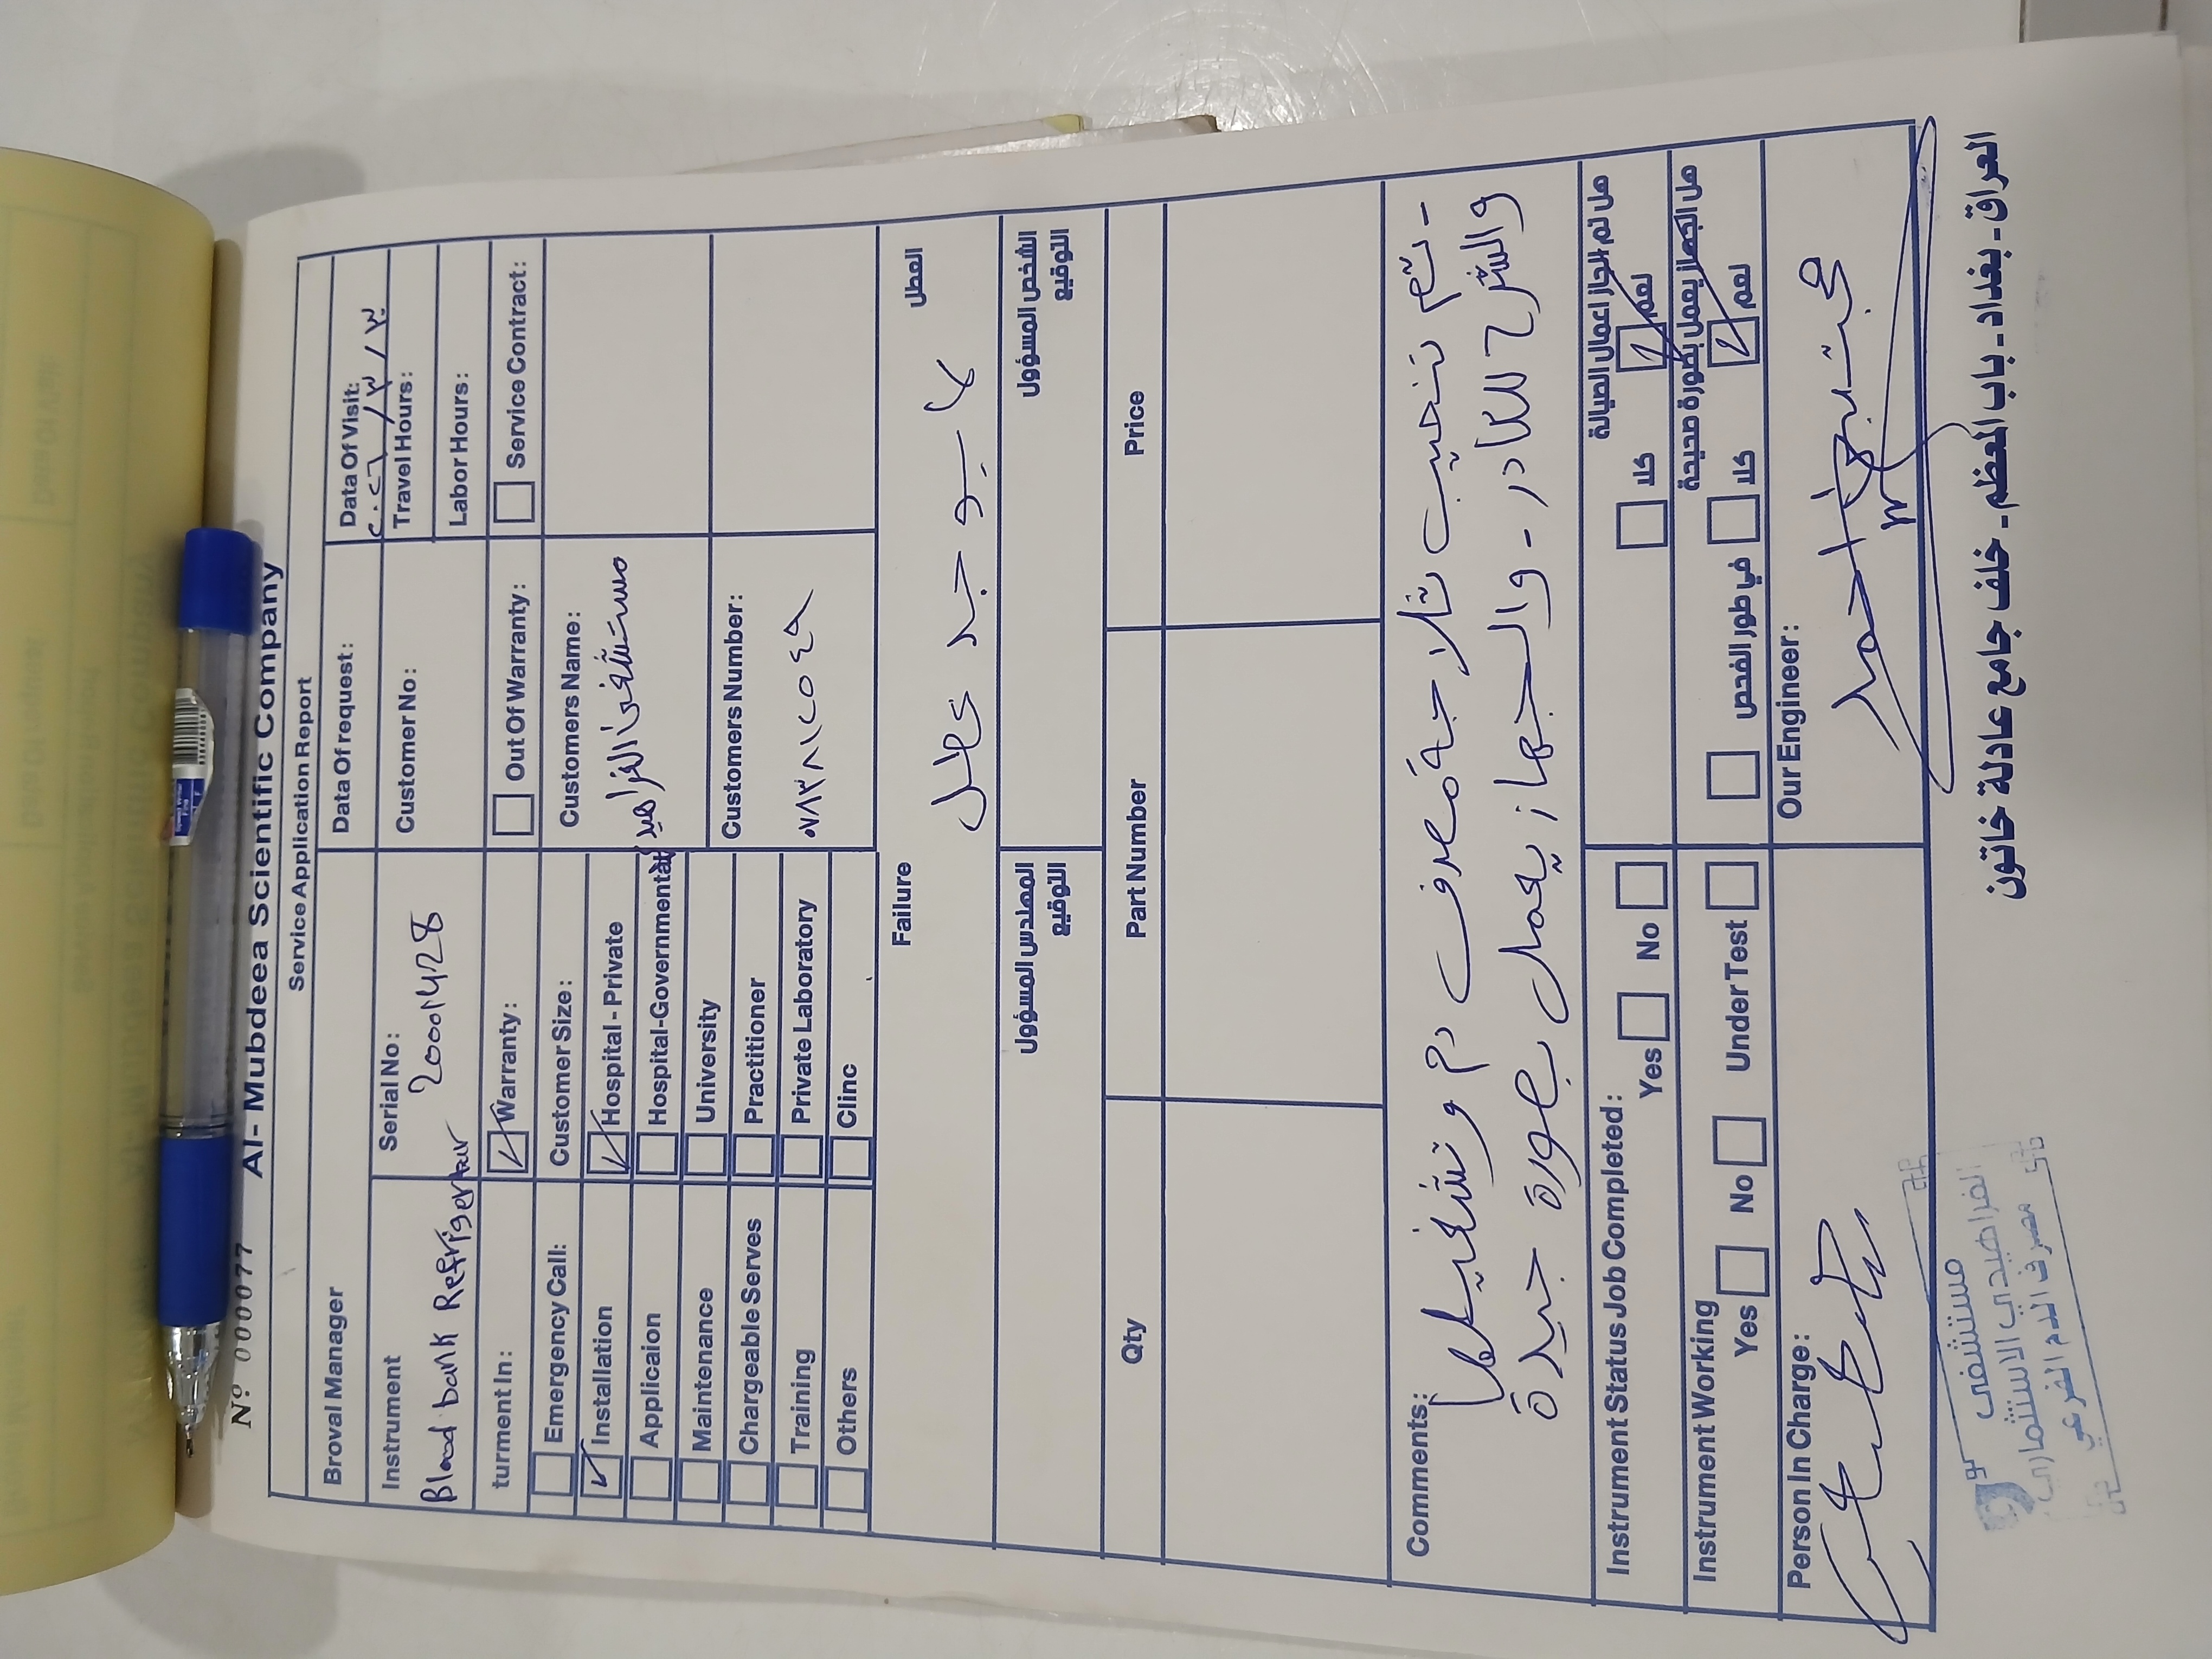 Nº 000077 Al- Mubdeea Scientific Company
Service Application Report
Broval Manager
Data Of request:
Data Of Visit:
٢٠٢٦ / ٣ / ٣
Instrument
Blood bank Refrigerator
Serial No:
20001428
Customer No:
Travel Hours:
Labor Hours:
turment In:
Warranty:
Out Of Warranty:
Service Contract:
Emergency Call:
Installation
Applicaion
Maintenance
Chargeable Serves
Training
Others
Customer Size:
Hospital - Private
Hospital-Governmental
University
Practitioner
Private Laboratory
Clinc
Customers Name:
مستشفى الفراهيدي
Customers Number:
Failure
العطل
لا يوجد عطل
المهندس المسؤول
التوقيع
الشخص المسؤول
التوقيع
Qty
Part Number
Price
Comments:
- تم تنصيب ثلاجة مصرف دم وتشغيلها
والشرح للكادر - والجهاز يعمل بصورة جيدة
Instrument Status Job Completed:
Yes
No
هل تم انجاز اعمال الصيانة
كلا
نعم
Instrument Working
Yes
No
Under Test
هل الجهاز يعمل بصورة صحيحة
في طور الفحص
كلا
نعم
Person In Charge:
Our Engineer:
مجتبى احمد
العراق - بغداد - باب المعظم - خلف جامع عادلة خاتون
مستشفى
الفراهيدي الاستثماري
مصرف الدم الفرعي